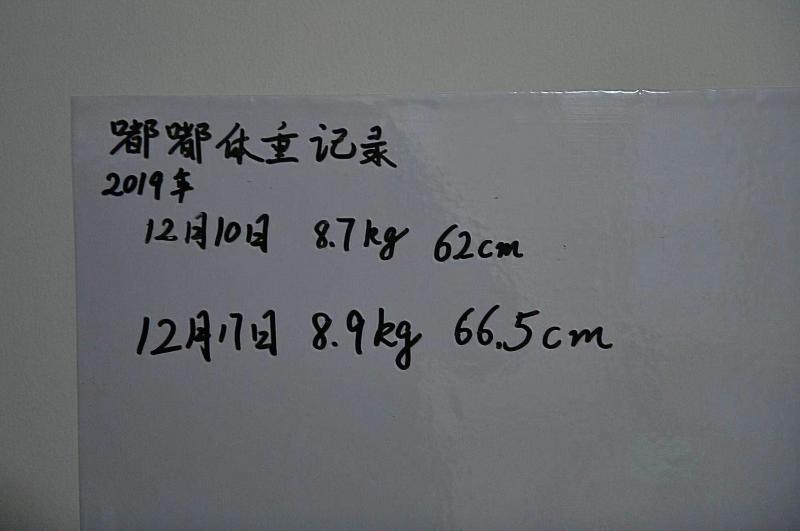 嘟嘟体重记录
2019年
12月10日 8.7kg 62cm
12月17日 8.9kg 66.5cm